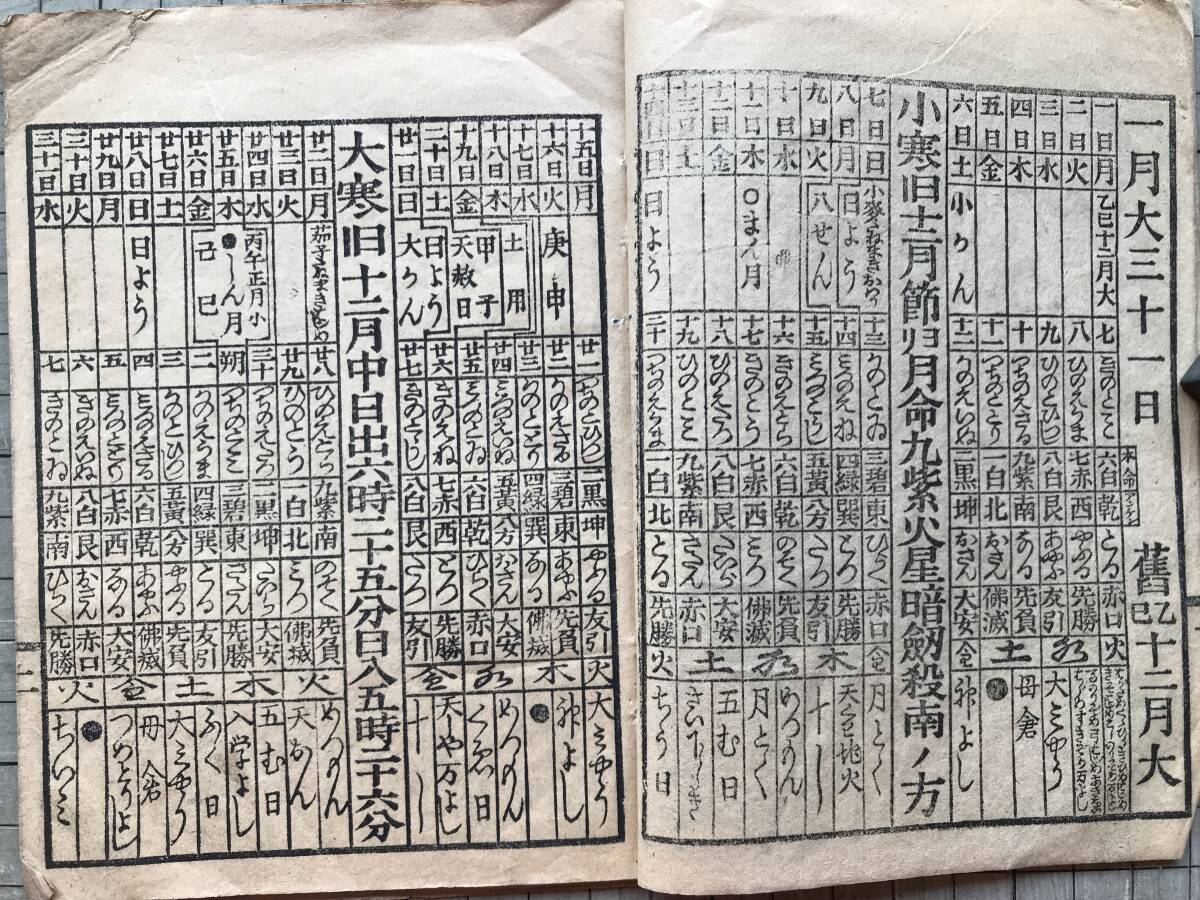 一月大三十一日 舊乙巳十二月大
一日月 乙巳十二月大 七 きのとミ 六白 乾 とる 赤口 火
二日火 八 ひのえうま 七赤 西 やふる 先勝
三日水 九 ひのとひつし 八白 艮 あやふ 友引 水 大ミやう
四日木 十 つちのえさる 九紫 南 なる 先負 母倉
五日金 十一 つちのととり 一白 北 おさん 佛滅 土
六日土 小かん 十二 かのえいぬ 二黒 坤 おさん 大安 金 神よし
小寒旧十二月節归月命九紫火星暗劔殺南ノ方
七日日 十三 かのとゐ 三碧 東 ひらく 赤口 金 月とく
八日月 日よう 十四 ミつのえね 四緑 巽 とつ 先勝
九日火 八せん 十五 ミつのとうし 五黄 八方 たつ 友引 木 十し
十日水 十六 きのえとら 六白 乾 のそく 先負 めつもん
十一日木 ○まん月 十七 きのとう 七赤 西 ミつ 佛滅 水 月とく
十二日金 十八 ひのえたつ 八白 艮 たいら 大安 五む日
十三日土 十九 ひのとミ 九紫 南 さたん 赤口 土
十四日日 日よう 二十 つちのえうま 一白 北 とる 先勝 火 ちう日
十五日月 廿一 つちのとひつし 二黒 坤 やふる 友引 火 大ミやう
十六日火 庚申 廿二 かのえさる 三碧 東 あやふ 先負 神よし
十七日水 土用 廿三 かのととり 四緑 巽 なる 佛滅 木 ●
十八日木 甲子 廿四 ミつのえいぬ 五黄 八方 おさん 大安 めつもん
十九日金 天赦日 廿五 ミつのとゐ 六白 乾 ひらく 赤口 水 くゑ日
二十日土 日よう 廿六 きのえね 七赤 西 とつ 先勝 天や万よし
廿一日日 大かん 廿七 きのとうし 八白 艮 たつ 友引 金 十し
大寒旧十二月中日出六時二十五分日入五時二十六分
廿二日月 茄子たねまきはしめ 廿八 ひのえとら 九紫 南 のそく 先負 火 めつもん
廿三日火 廿九 ひのとう 一白 北 ミつ 佛滅 天おん
廿四日水 丙午正月小 三十 つちのえたつ 二黒 坤 たいら 大安 木 五む日
廿五日木 ●しん月 朔 つちのとミ 三碧 東 さたん 先勝 入学よし
廿六日金 己巳 二 かのえうま 四緑 巽 とる 友引 土 ふく日
廿七日土 三 かのとひつし 五黄 八方 やふる 先負 大ミやう
廿八日日 日よう 四 ミつのえさる 六白 乾 あやふ 佛滅 金 母倉
廿九日月 五 ミつのととり 七赤 西 なる 大安 つめとりよし
三十日火 六 きのえいぬ 八白 艮 おさん 赤口 火 ●
三十一日水 七 きのとゐ 九紫 南 ひらく 先勝 ちいミ
二